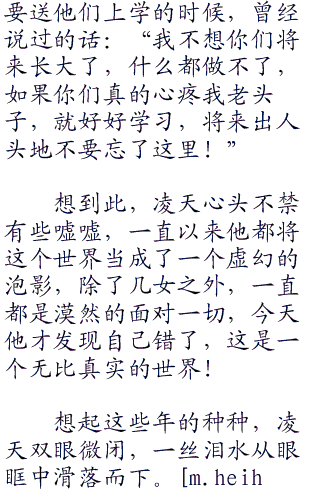 要送他们上学的时候，曾经
说过的话：“我不想你们将
来长大了，什么都做不了，
如果你们真的心疼我老头
子，就好好学习，将来出人
头地不要忘了这里！”
想到此，凌天心头不禁
有些嘘嘘，一直以来他都将
这个世界当成了一个虚幻的
泡影，除了几女之外，一直
都是漠然的面对一切，今天
他才发现自己错了，这是一
个无比真实的世界！
想起这些年的种种，凌
天双眼微闭，一丝泪水从眼
眶中滑落而下。[m.heih